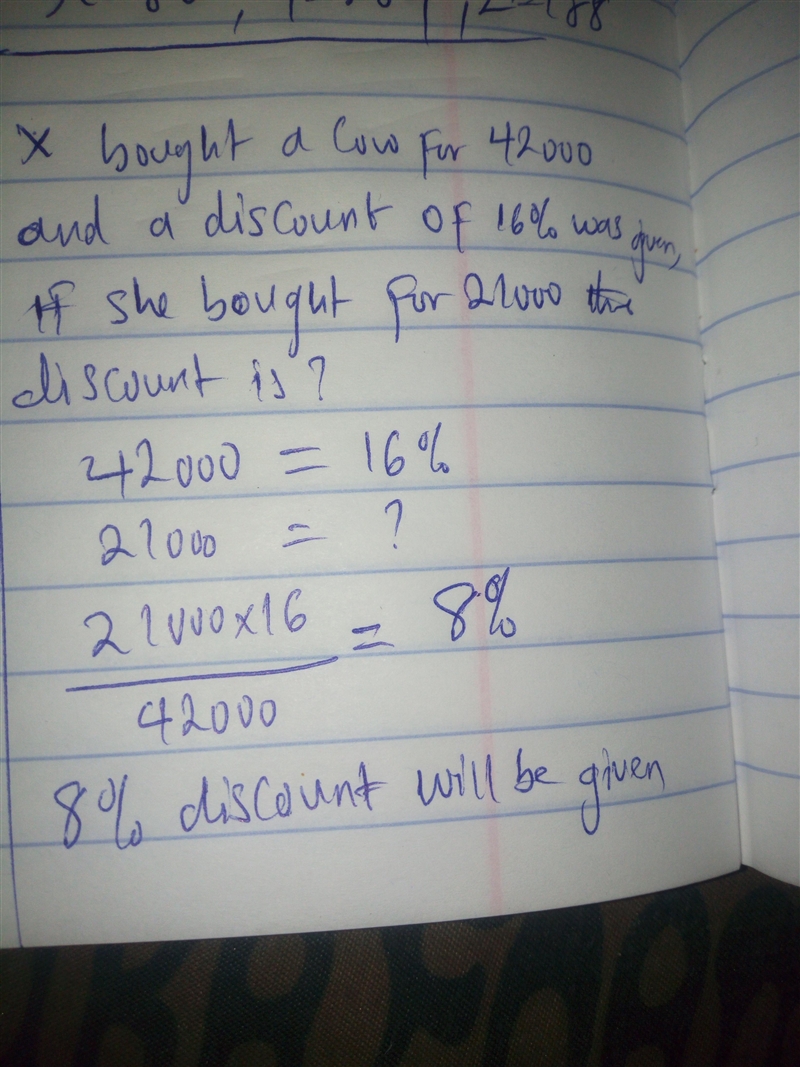 X bought a Cow For 42000
and a discount OF 16% was given,
IF she bought for 21000 the
discount is?
42000 = 16%
21000 = ?
21000x16 = 8%
42000
8% discount will be given